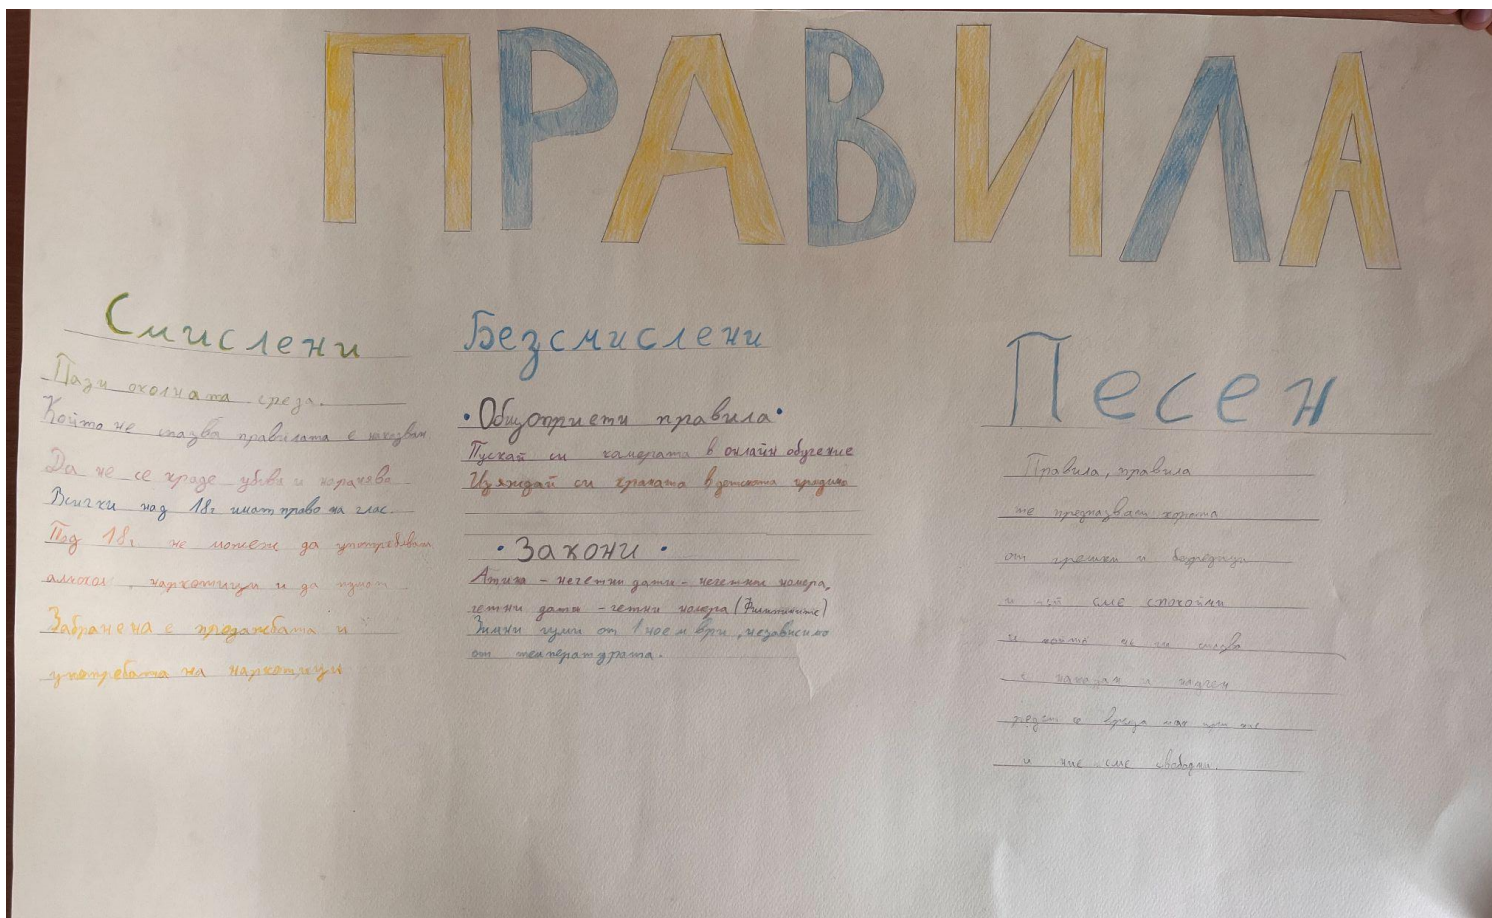 ПРАВИЛА
Смислени
Пази околната среда.
Който не спазва правилата е наказван
Да не се краде убива и наранява
Всички над 18г имат право на глас
Под 18г не можеш да употребяваш
алкохол, наркотици и да
Забранена е продажбата и
употребата на наркотици
Безсмислени
• Общоприети правила •
Пускай си камерата в онлайн обучение
Изяждай си храната в детската градина
• Закони •
Атина - нечетни дати - нечетни номера,
четни дати - четни номера (Филипините)
Зимни гуми от 1 ноември, независимо
от температурата.
Песен
Правила, правила
те предпазват хората
от грешки и
и сме спокойни
и не ги спазва
е наказан и
се връща при
и ние сме свободни.